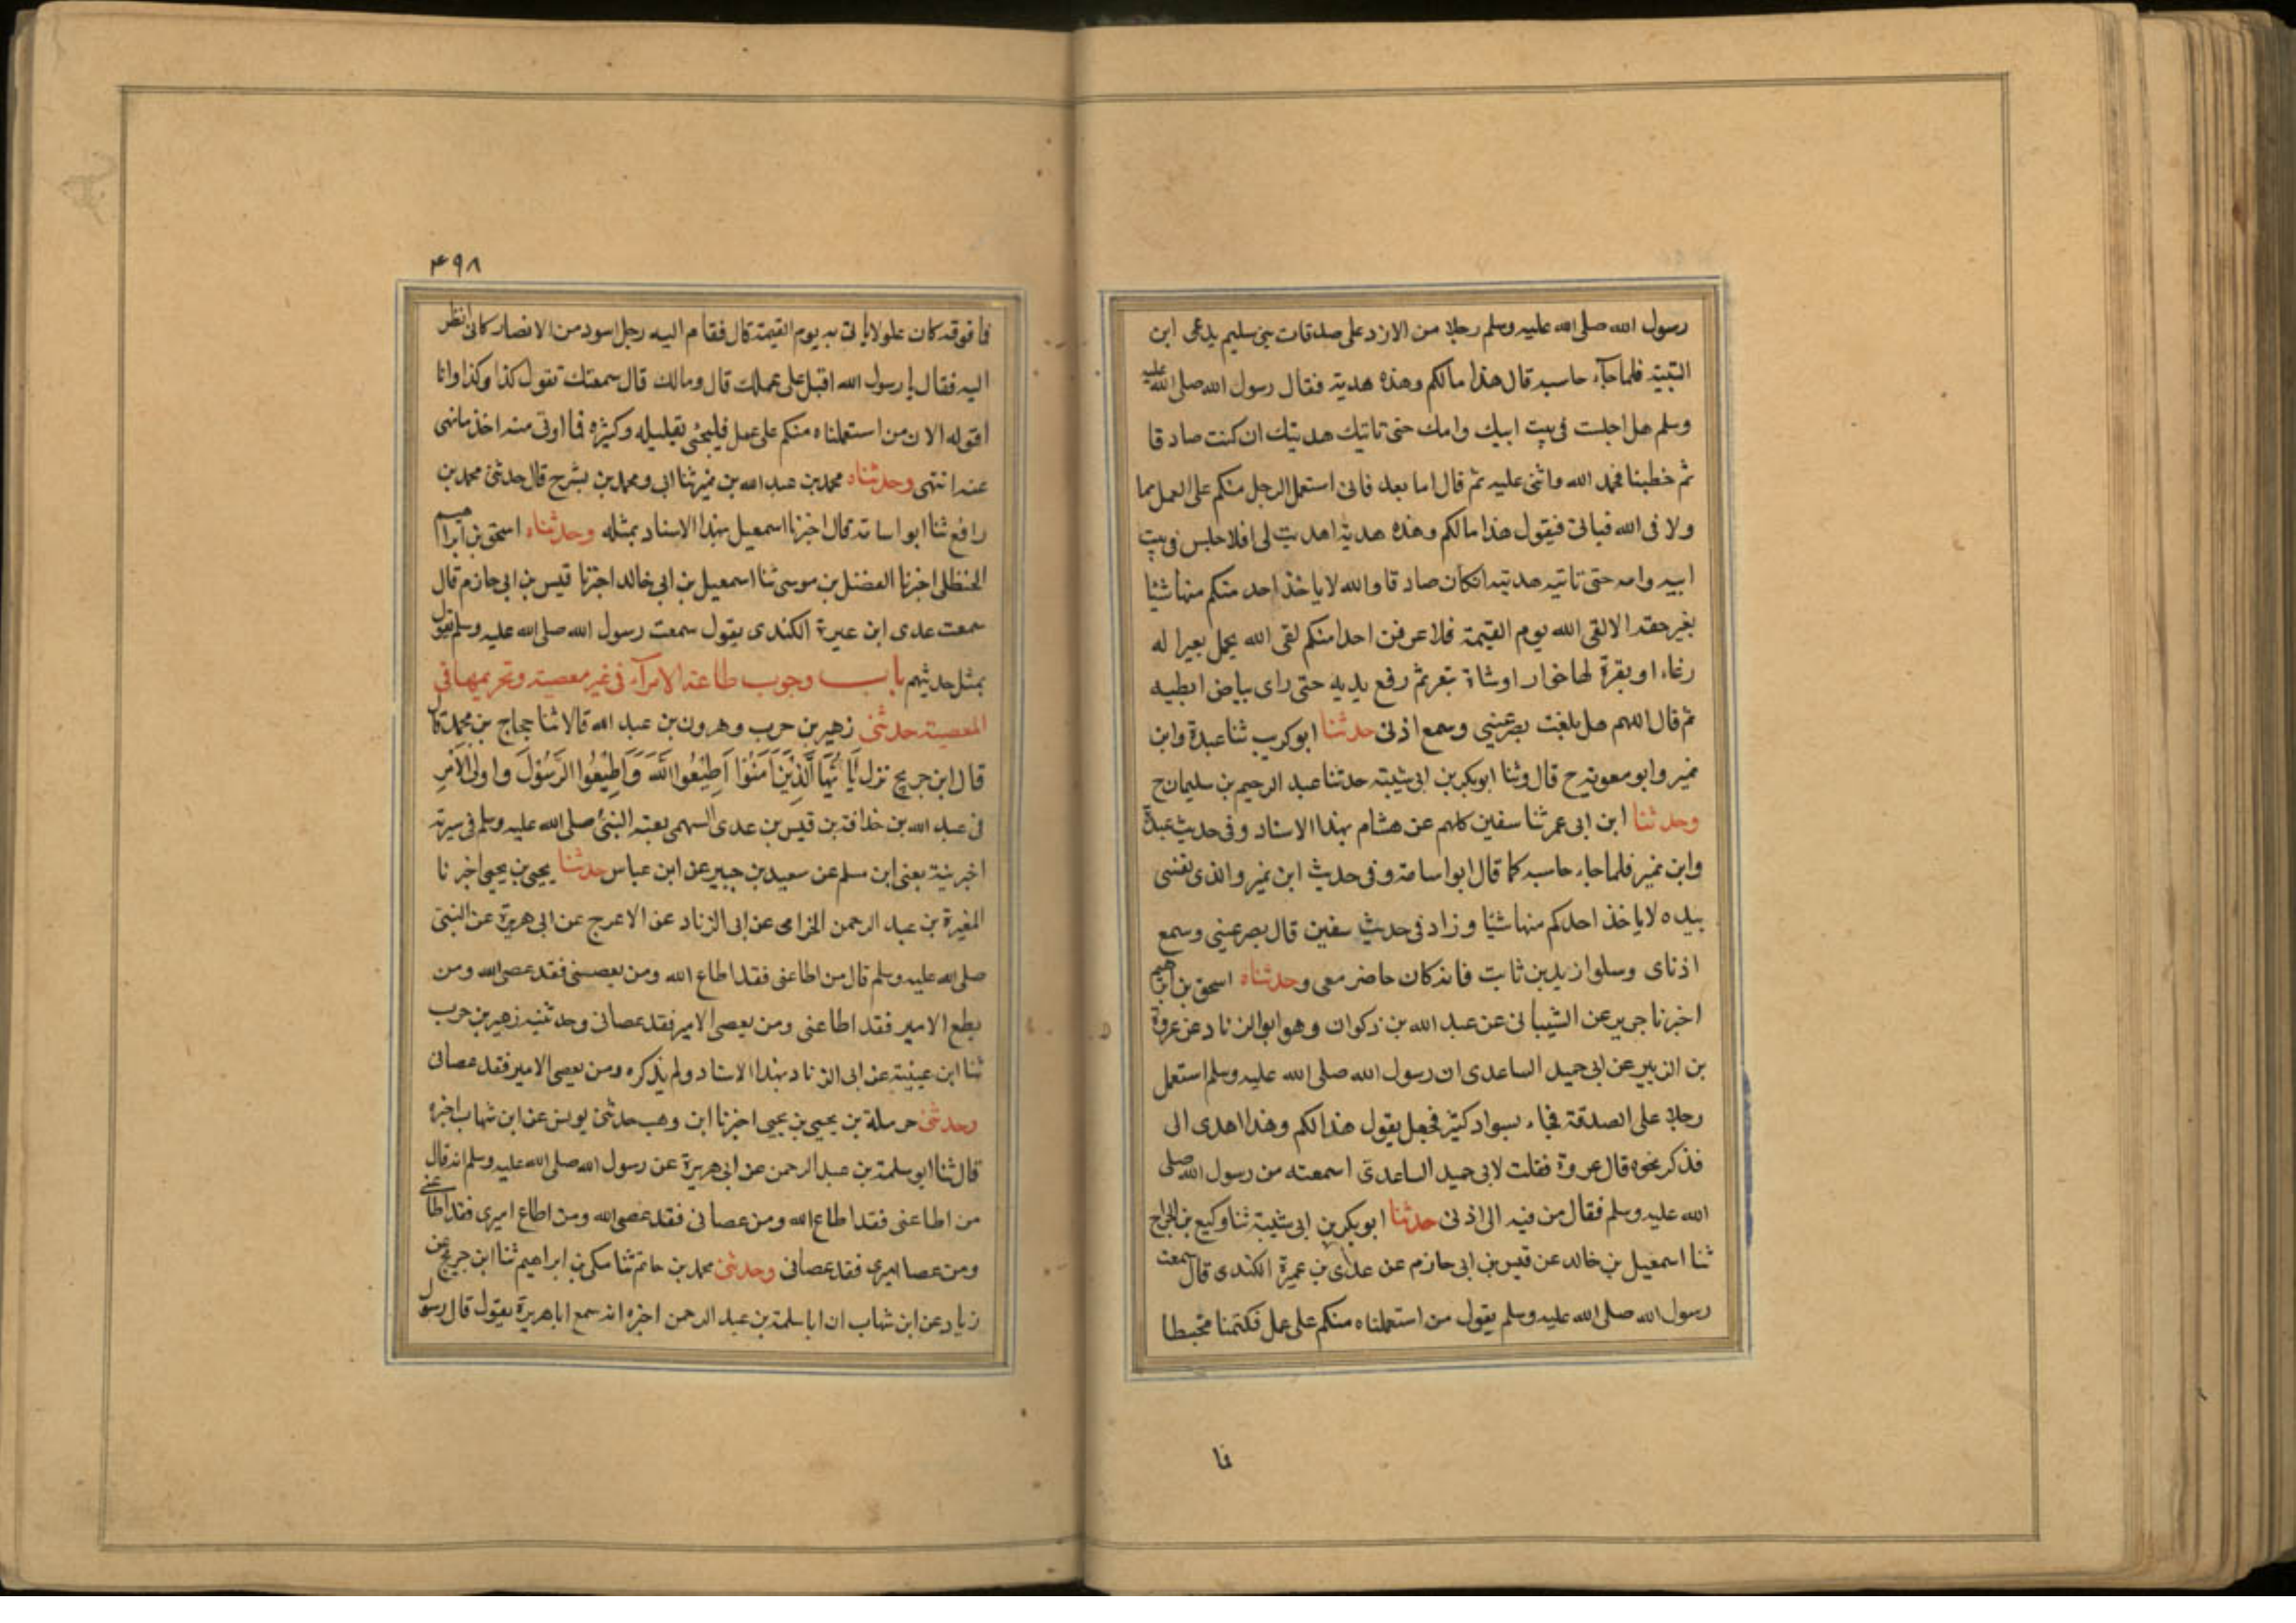 رسول الله صلى الله عليه وسلم رجلا من الازد على صدقات بنى سليم يدعى ابن
التبية فلما جآء حاسبه قال هذا مالكم وهذه هدية فقال رسول الله صلى الله عليه
وسلم هل اجلست فى بيت ابيك وامك حتى تاتيك هديتك ان كنت صادقا
ثم خطبنا فحمد الله واثنى عليه ثم قال اما بعد فانى استعمل الرجل منكم على العمل مما
ولانى الله فياتى فيقول هذا مالكم وهذه هدية اهديت لى افلا جلس فى بيت
ابيه وامه حتى تاتيه هديته انكان صادقا والله لا ياخذ احد منكم منها شيئا
بغير حقه الا لقى الله يوم القيمة فلا عرفن احدا منكم لقى الله يحمل بعيرا له
رغاء او بقرة لها خوار او شاة تيعر ثم رفع يديه حتى راى بياض ابطيه
ثم قال اللهم هل بلغت بصر عينى وسمع اذنى حدثنا ابو كريب ثنا عبدة وابن
نمير وابو معوية ح قال وثنا ابوبكر بن ابى شيبة حدثنا عبد الرحيم بن سليمان ح
وحدثنا ابن ابى عمر ثنا سفين كلهم عن هشام بهذا الاسناد وفى حديث عبدة
وابن نمير فلما جاء حاسبه كما قال ابو اسامة وفى حديث ابن نمير والذى نفسى
بيده لا ياخذ احدكم منها شيئا وزاد فى حديث سفين قال بصر عينى وسمع
اذناى وسلوا زيد بن ثابت فانه كان حاضر معى وحدثناه اسحق بن ابراهيم
اخبرنا جرير عن الشيبانى عن عبد الله بن ذكوان وهو ابو الزناد عن عروة
بن الزبير عن ابى حميد الساعدى ان رسول الله صلى الله عليه وسلم استعمل
رجلا على الصدقة فجاء بسواد كثير فجعل يقول هذا لكم وهذا اهدى الى
فذكر نحوه قال عروة فقلت لابى حميد الساعدى اسمعته من رسول الله صلى
الله عليه وسلم فقال من فيه الى اذنى حدثنا ابوبكر بن ابى شيبة ثنا وكيع بن الجراح
ثنا اسمعيل بن خالد عن قيس بن ابى حازم عن عدى بن عميرة الكندى قال سمعت
رسول الله صلى الله عليه وسلم يقول من استعملناه منكم على عمل فكتمنا مخيطا
فا
۴۹۸
فا فوقه كان غلولا ياتى به يوم القيمة قال فقام اليه رجل اسود من الانصار كانى انظر
اليه فقال يا رسول الله اقبل على عملك قال ومالك قال سمعتك تقول كذا وكذا وانا
اقوله الان من استعملناه منكم على عمل فليجئ بقليله وكثيره فما اوتى منه اخذ مانهى
عنه انتهى وحدثناه محمد بن عبد الله بن نمير ثنا ابى ومحمد بن بشر ح قال حدثنى محمد بن
رافع ثنا ابو اسامة قال اخبرنا اسمعيل بهذا الاسناد بمثله وحدثناه اسحق بن ابراهيم
الحنظلى اخبرنا الفضل بن موسى ثنا اسمعيل بن ابى خالد اخبرنا قيس بن ابى حازم قال
سمعت عدى ابن عميرة الكندى يقول سمعت رسول الله صلى الله عليه وسلم يقول
بمثل حديثهم باب وجوب طاعة الامرآء فى غير معصية وتحريمها فى
المعصية حدثنى زهير بن حرب وهرون بن عبد الله قالا ثنا حجاج بن محمد قال
قال ابن جريج نزل يَا اَيُّهَا الَّذِيْنَ اٰمَنُوْا اَطِيْعُوا اللّٰهَ وَاَطِيْعُوا الرَّسُوْلَ واولى الاَمْرِ
فى عبد الله بن حذافة بن قيس بن عدى السهمى بعثه النبى صلى الله عليه وسلم فى سرية
اخبرنيه يعنى ابن مسلم عن سعيد بن جبير عن ابن عباس حدثنا يحيى بن يحيى اخبرنا
المغيرة بن عبد الرحمن الخزامى عن ابى الزناد عن الاعرج عن ابى هريرة عن النبى
صلى الله عليه وسلم قال من اطاعنى فقد اطاع الله ومن يعصنى فقد عصى الله ومن
يطع الامير فقد اطاعنى ومن يعصى الامير فقد عصانى وحدثنيه زهير بن حرب
ثنا ابن عيينة عن ابى الزناد بهذا الاسناد ولم يذكره ومن يعصى الامير فقد عصانى
وحدثنى حرملة بن يحيى بن يحيى اخبرنا ابن وهب حدثنى يونس عن ابن شهاب اخبره
قال ثنا ابو سلمة بن عبد الرحمن عن ابى هريرة عن رسول الله صلى الله عليه وسلم انه قال
من اطاعنى فقد اطاع الله ومن عصانى فقد عصى الله ومن اطاع اميرى فقد اطاعنى
ومن عصا اميرى فقد عصانى وحدثنى محمد بن حاتم ثنا مكى بن ابراهيم ثنا ابن جريج عن
زياد عن ابن شهاب ان ابا سلمة بن عبد الرحمن اخبره انه سمع ابا هريرة يقول قال رسول